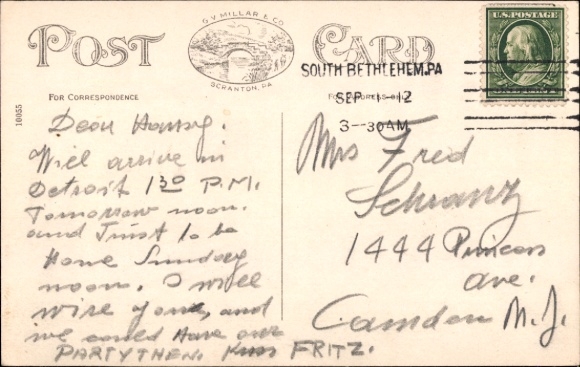 POST CARD
G. V. MILLAR & CO.
SCRANTON, PA.
U.S. POSTAGE
SOUTH BETHLEHEM, PA
SEP 1-12
3-30AM
FOR CORRESPONDENCE
FOR ADDRESS ONLY
16055
Dear
Will arrive in
Detroit 1 30 P.M.
Tomorrow noon.
and Trust to be
Home Sunday
noon. I will
wire you, and
we could Have our
PARTY THEN. Kiss FRITZ.
Mrs Fred
Schranz
1444 Princess
ave.
Camden N.J.